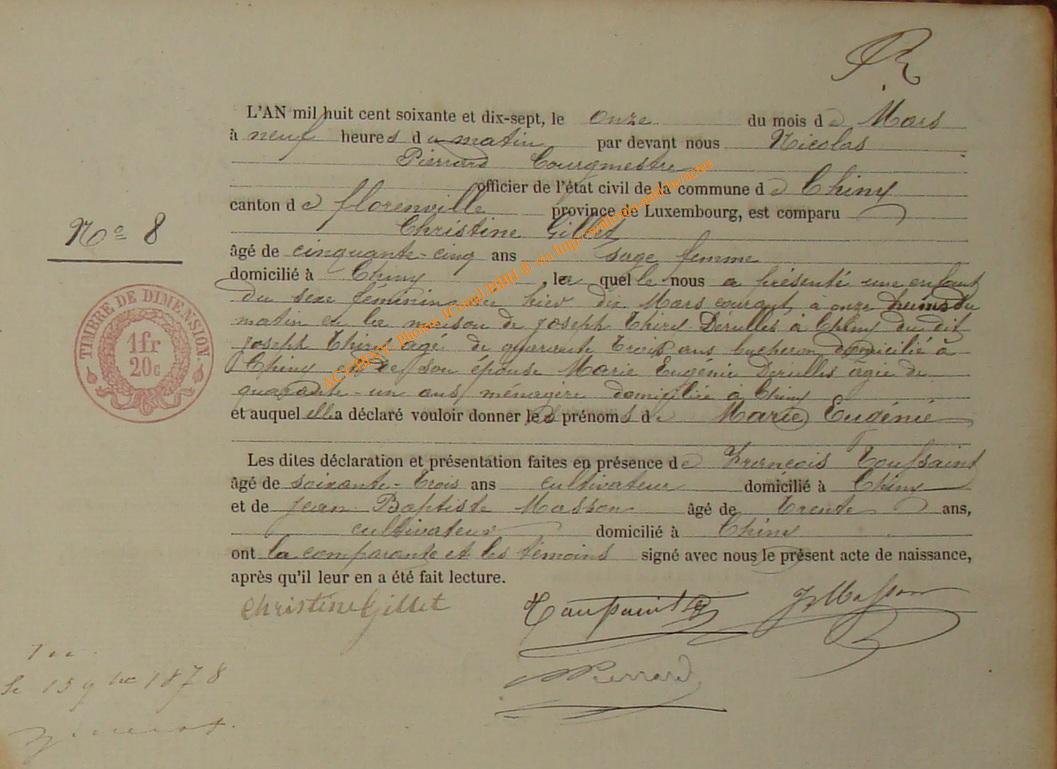 L'AN mil huit cent soixante et dix-sept, le onze du mois de Mars
à neuf heures du matin par devant nous Nicolas
Pierrard Bourgmestre
officier de l'état civil de la commune de Chiny
canton de florenville province de Luxembourg, est comparu
Christine Gillet
No 8
âgé de cinquante-cinq ans sage femme
domicilié à Chiny le quel le nous a présenté une enfant
du sexe féminin née hier dix Mars courant, à onze heures du
matin en la maison de Joseph Thiry Derulles à Chiny du dit
Joseph Thiry agé de quarante trois ans bucheron domicilié à
Chiny et de son épouse Marie Eugenie Derulles agée de
quarante-un ans, ménagère domiciliée à Chiny
et auquel elle a déclaré vouloir donner les prénoms de Marie Eugénie
Les dites déclaration et présentation faites en présence de François Toussaint
âgé de soixante-trois ans cultivateur domicilié à Chiny
et de Jean Baptiste Masson âgé de trente ans,
cultivateur domicilié à Chiny
ont la comparante et les témoins signé avec nous le présent acte de naissance,
après qu'il leur en a été fait lecture.
Christine Gillet Toussaint JMasson
NPierrard
TIMBRE DE DIMENSION
1 fr
20 c
Le 15 9bre 1878